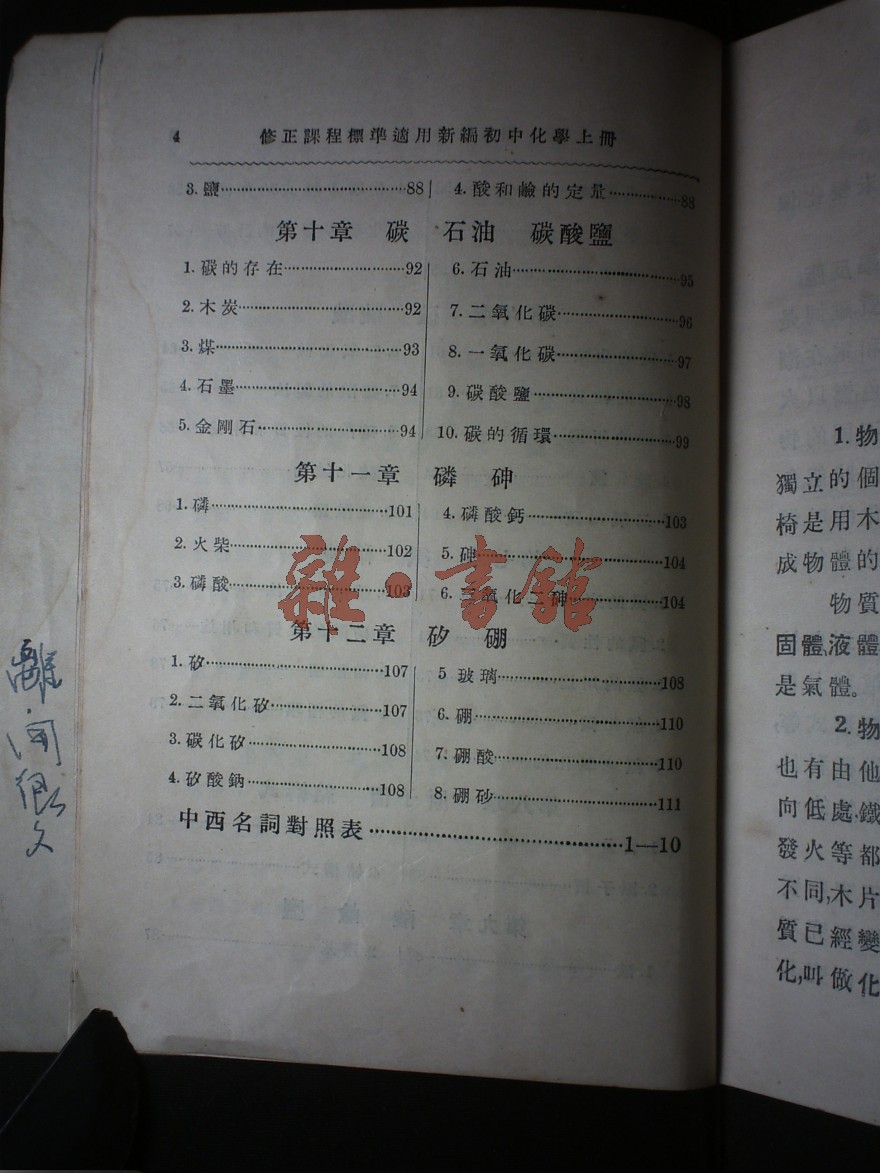 4 修正課程標準適用新編初中化學上冊
3. 鹽……88
4. 酸和鹼的定量……88
第十章 碳 石油 碳酸鹽
1. 碳的存在……92
2. 木炭……92
3. 煤……93
4. 石墨……94
5. 金剛石……94
6. 石油……95
7. 二氧化碳……96
8. 一氧化碳……97
9. 碳酸鹽……98
10. 碳的循環……99
第十一章 磷 砷
1. 磷……101
2. 火柴……102
3. 磷酸……103
4. 磷酸鈣……103
5. 砷……104
6. 三氧化二砷……104
雜·書館
第十二章 矽 硼
1. 矽……107
2. 二氧化矽……107
3. 碳化矽……108
4. 矽酸鈉……108
5 玻璃……108
6. 硼……110
7. 硼酸……110
8. 硼砂……111
中西名詞對照表……1—10
1. 物
獨立的個
椅是用木
成物體的
物質
固體,液體
是氣體。
2. 物
也有由他
向低處,鐵
發火等都
不同,木片
質已經變
化,叫做化